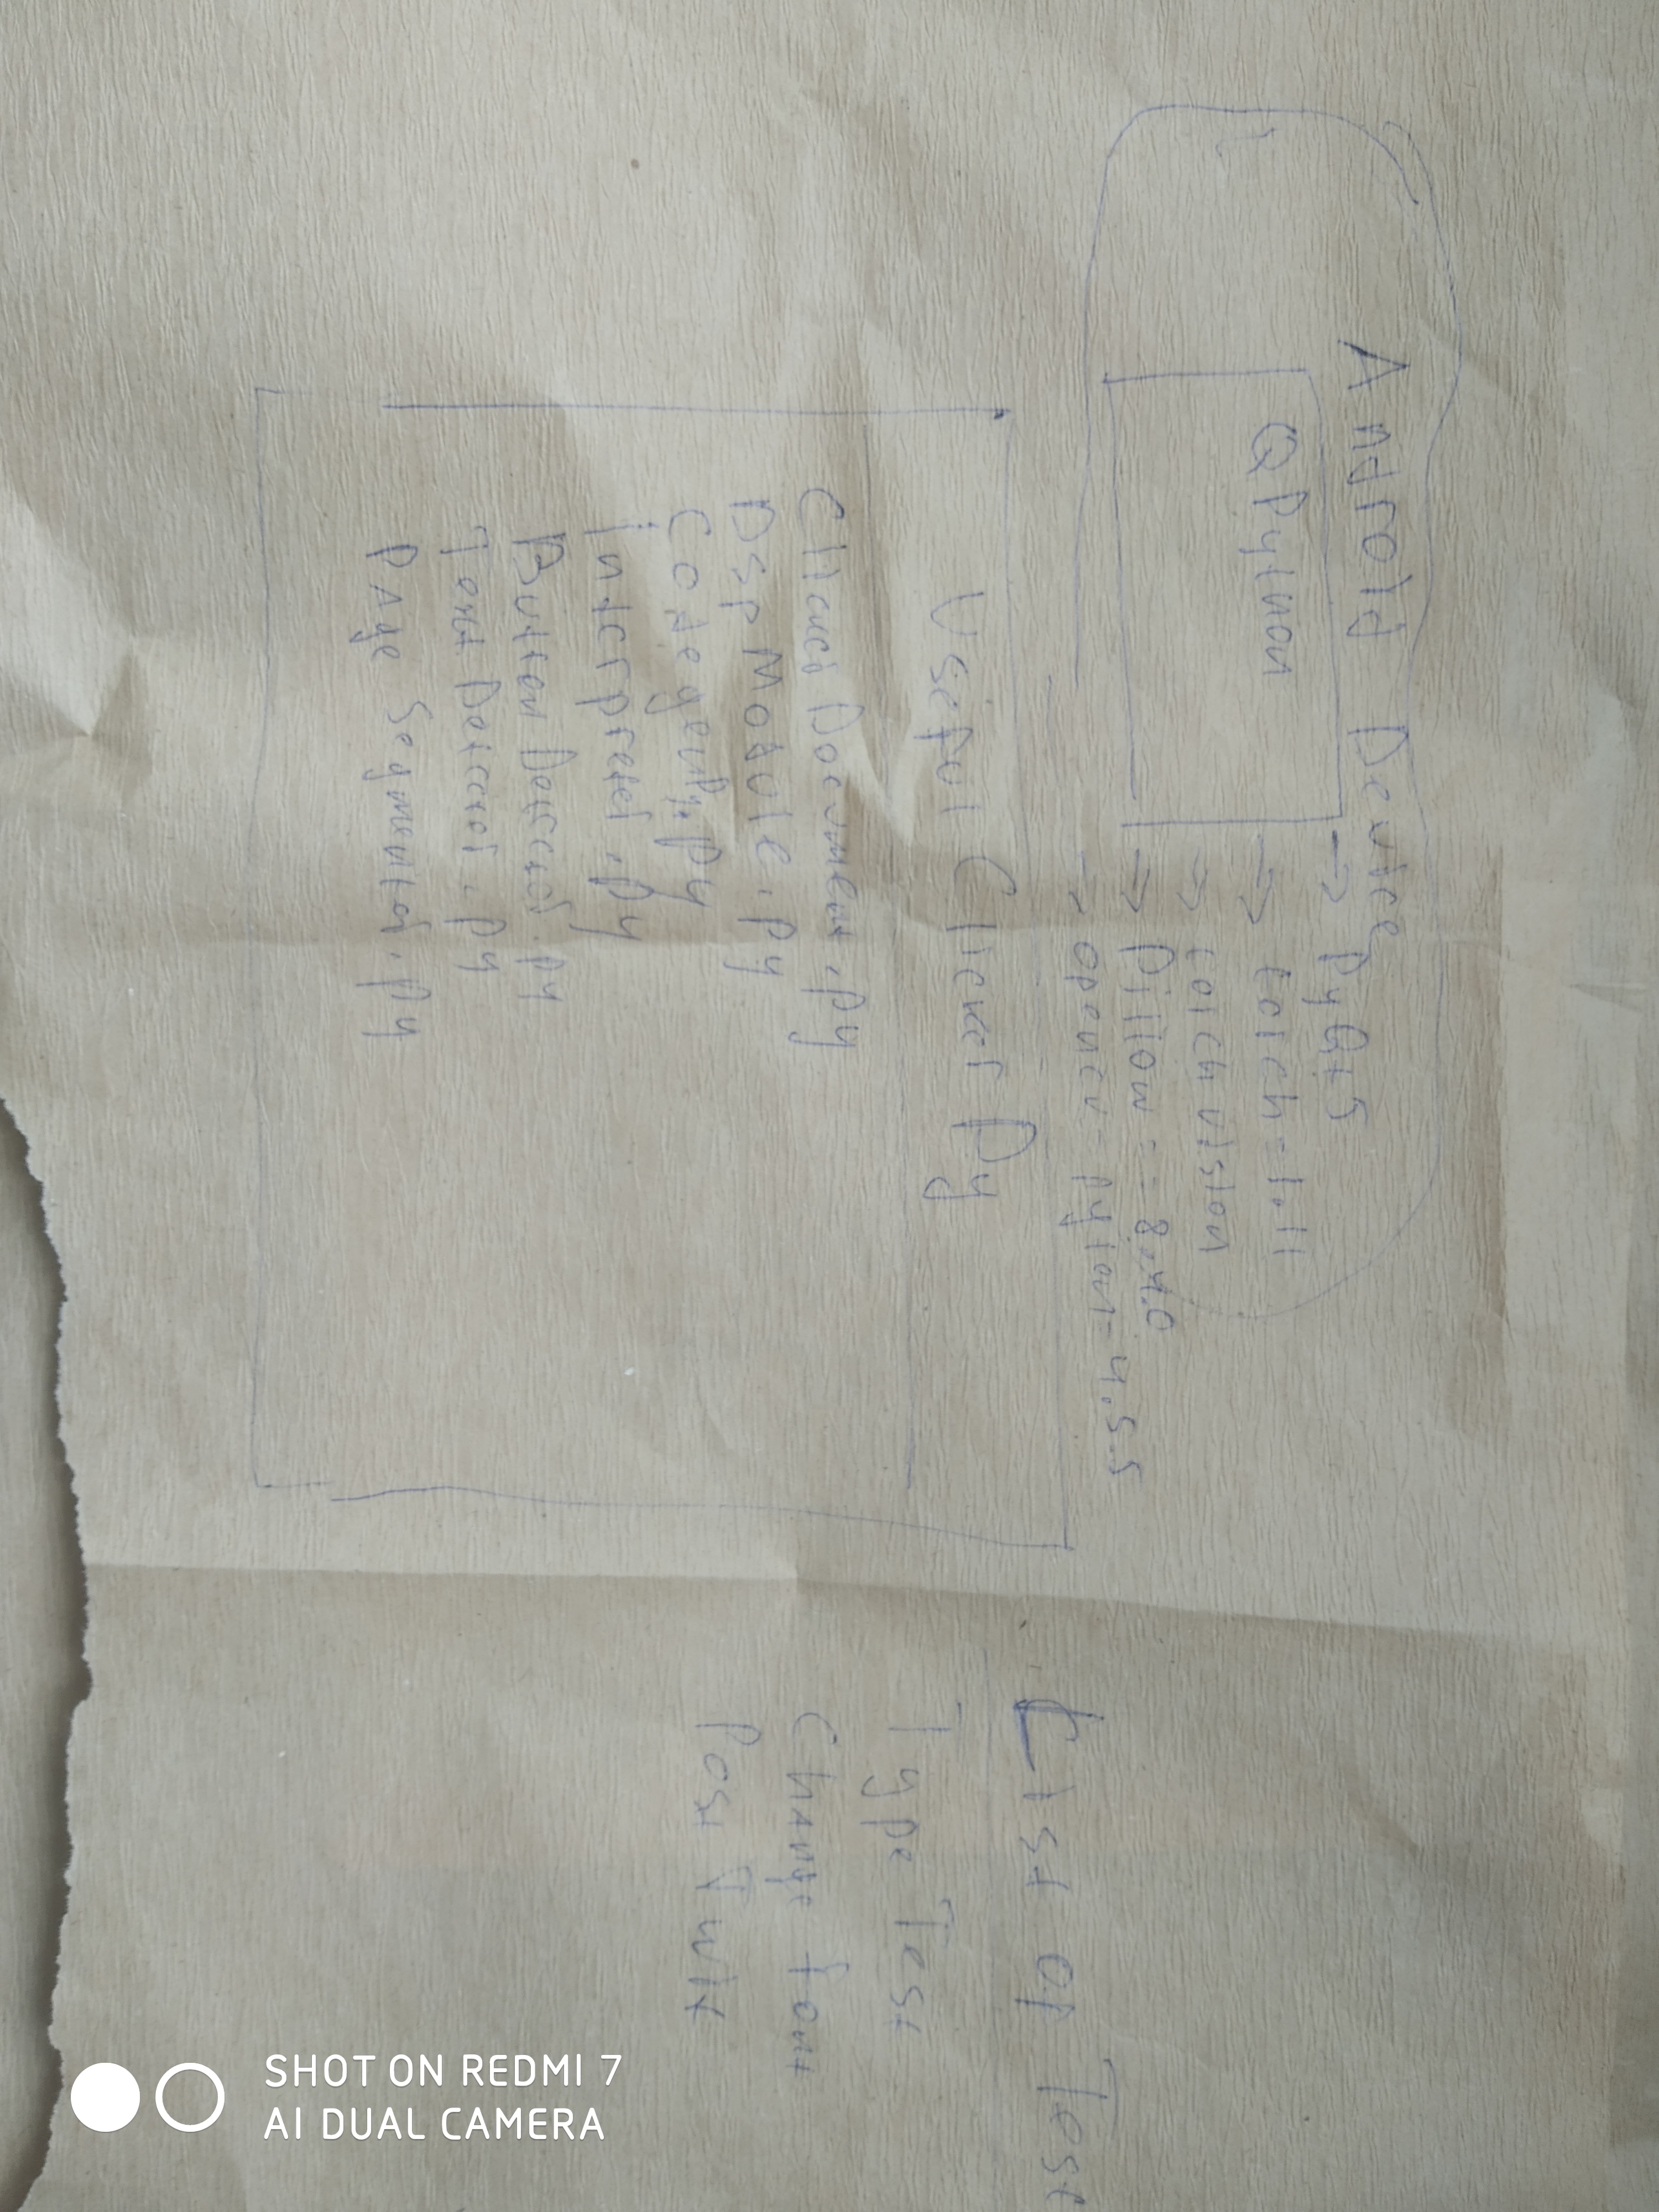 Android Device
QPython
→ PyQt5
→ torch=1.11
→ torch vision
→ Pillow == 8.4.0
→ opencv-pyton=4.5.5
Useful Clicker Py
Clicker Document.py
Dsp Module.py
CodegenPy.py
interpreter.py
Button Detector.py
Text Detector.py
Page Segmentor.py
List of Test
Type Test
Change font
Post Twit
SHOT ON REDMI 7
AI DUAL CAMERA